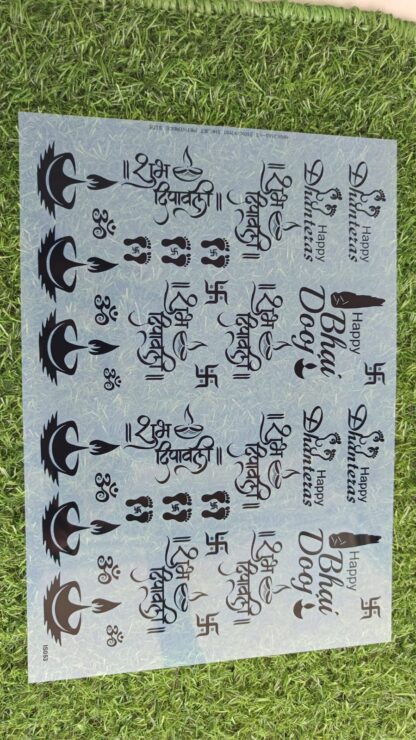 ॥ शुभ
दिपावली ॥
॥ शुभ
दिपावली ॥
Happy
Dhanteras
Happy
Dhanteras
ॐ
ॐ
ॐ
॥ शुभ
दिपावली ॥
॥ शुभ
दिपावली ॥
Happy
Bhai
Dooj
॥ शुभ
दिपावली ॥
॥ शुभ
दिपावली ॥
Happy
Dhanteras
Happy
Dhanteras
ॐ
ॐ
ॐ
॥ शुभ
दिपावली ॥
॥ शुभ
दिपावली ॥
Happy
Bhai
Dooj
IS063